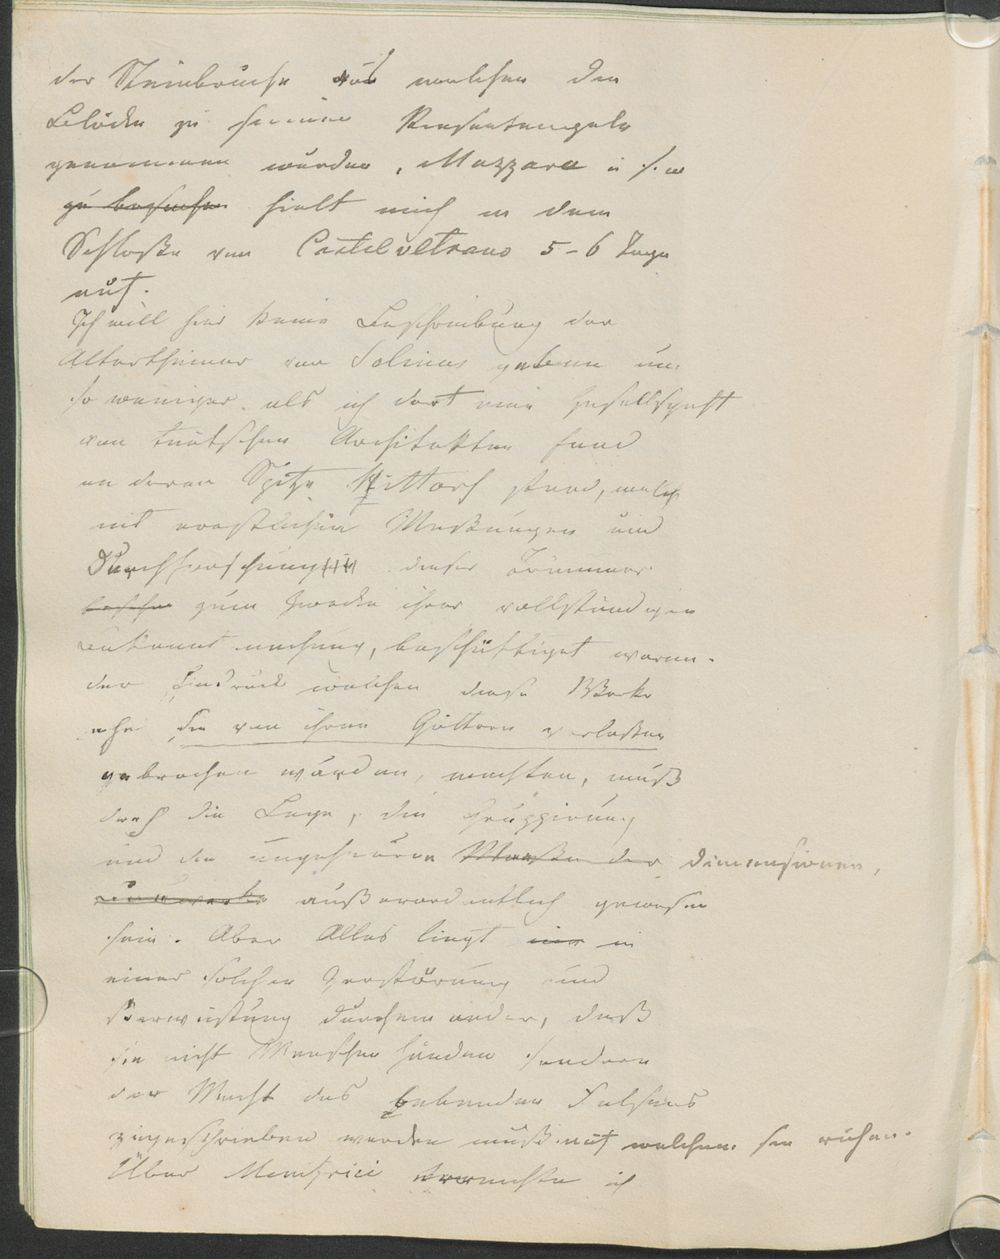 der Steinbrüche aus welchen die
Blöcke zu seinen Riesentempeln
genommen wurden, Mazzara u s. w
zu besuchen hielt mich in dem
Schloße von Castelveltrano 5-6 Tage
auf.
Ich will hier keine Beschreibung der
Alterthümer von Selinus geben um
so weniger als ich dort eine Gesellschaft
von deutschen Architekten fand
an deren Spitze Hittorf stand, welche
mit Meßungen und
Durchforschung dieser Trümmer
zum Zwecke ihrer vollständigen
Bekanntmachung, beschäftiget waren.
der Eindruck welchen diese Werke
ehe sie von ihren Göttern verlaßen
gebrochen wurden, machten, muß
durch die Lage, die Gruppirung
und die ungeheuren Maaße der Dimensionen,
außerordentlich gewesen
sein. Aber Alles liegt in
einer solchen Zerstörung und
Verwüstung durcheinander, daß
sie nicht Menschen händen sondern
der Macht des bebenden Felsens
zugeschrieben werden muß auf welchem sie ruhen.
Über Monfrici ich